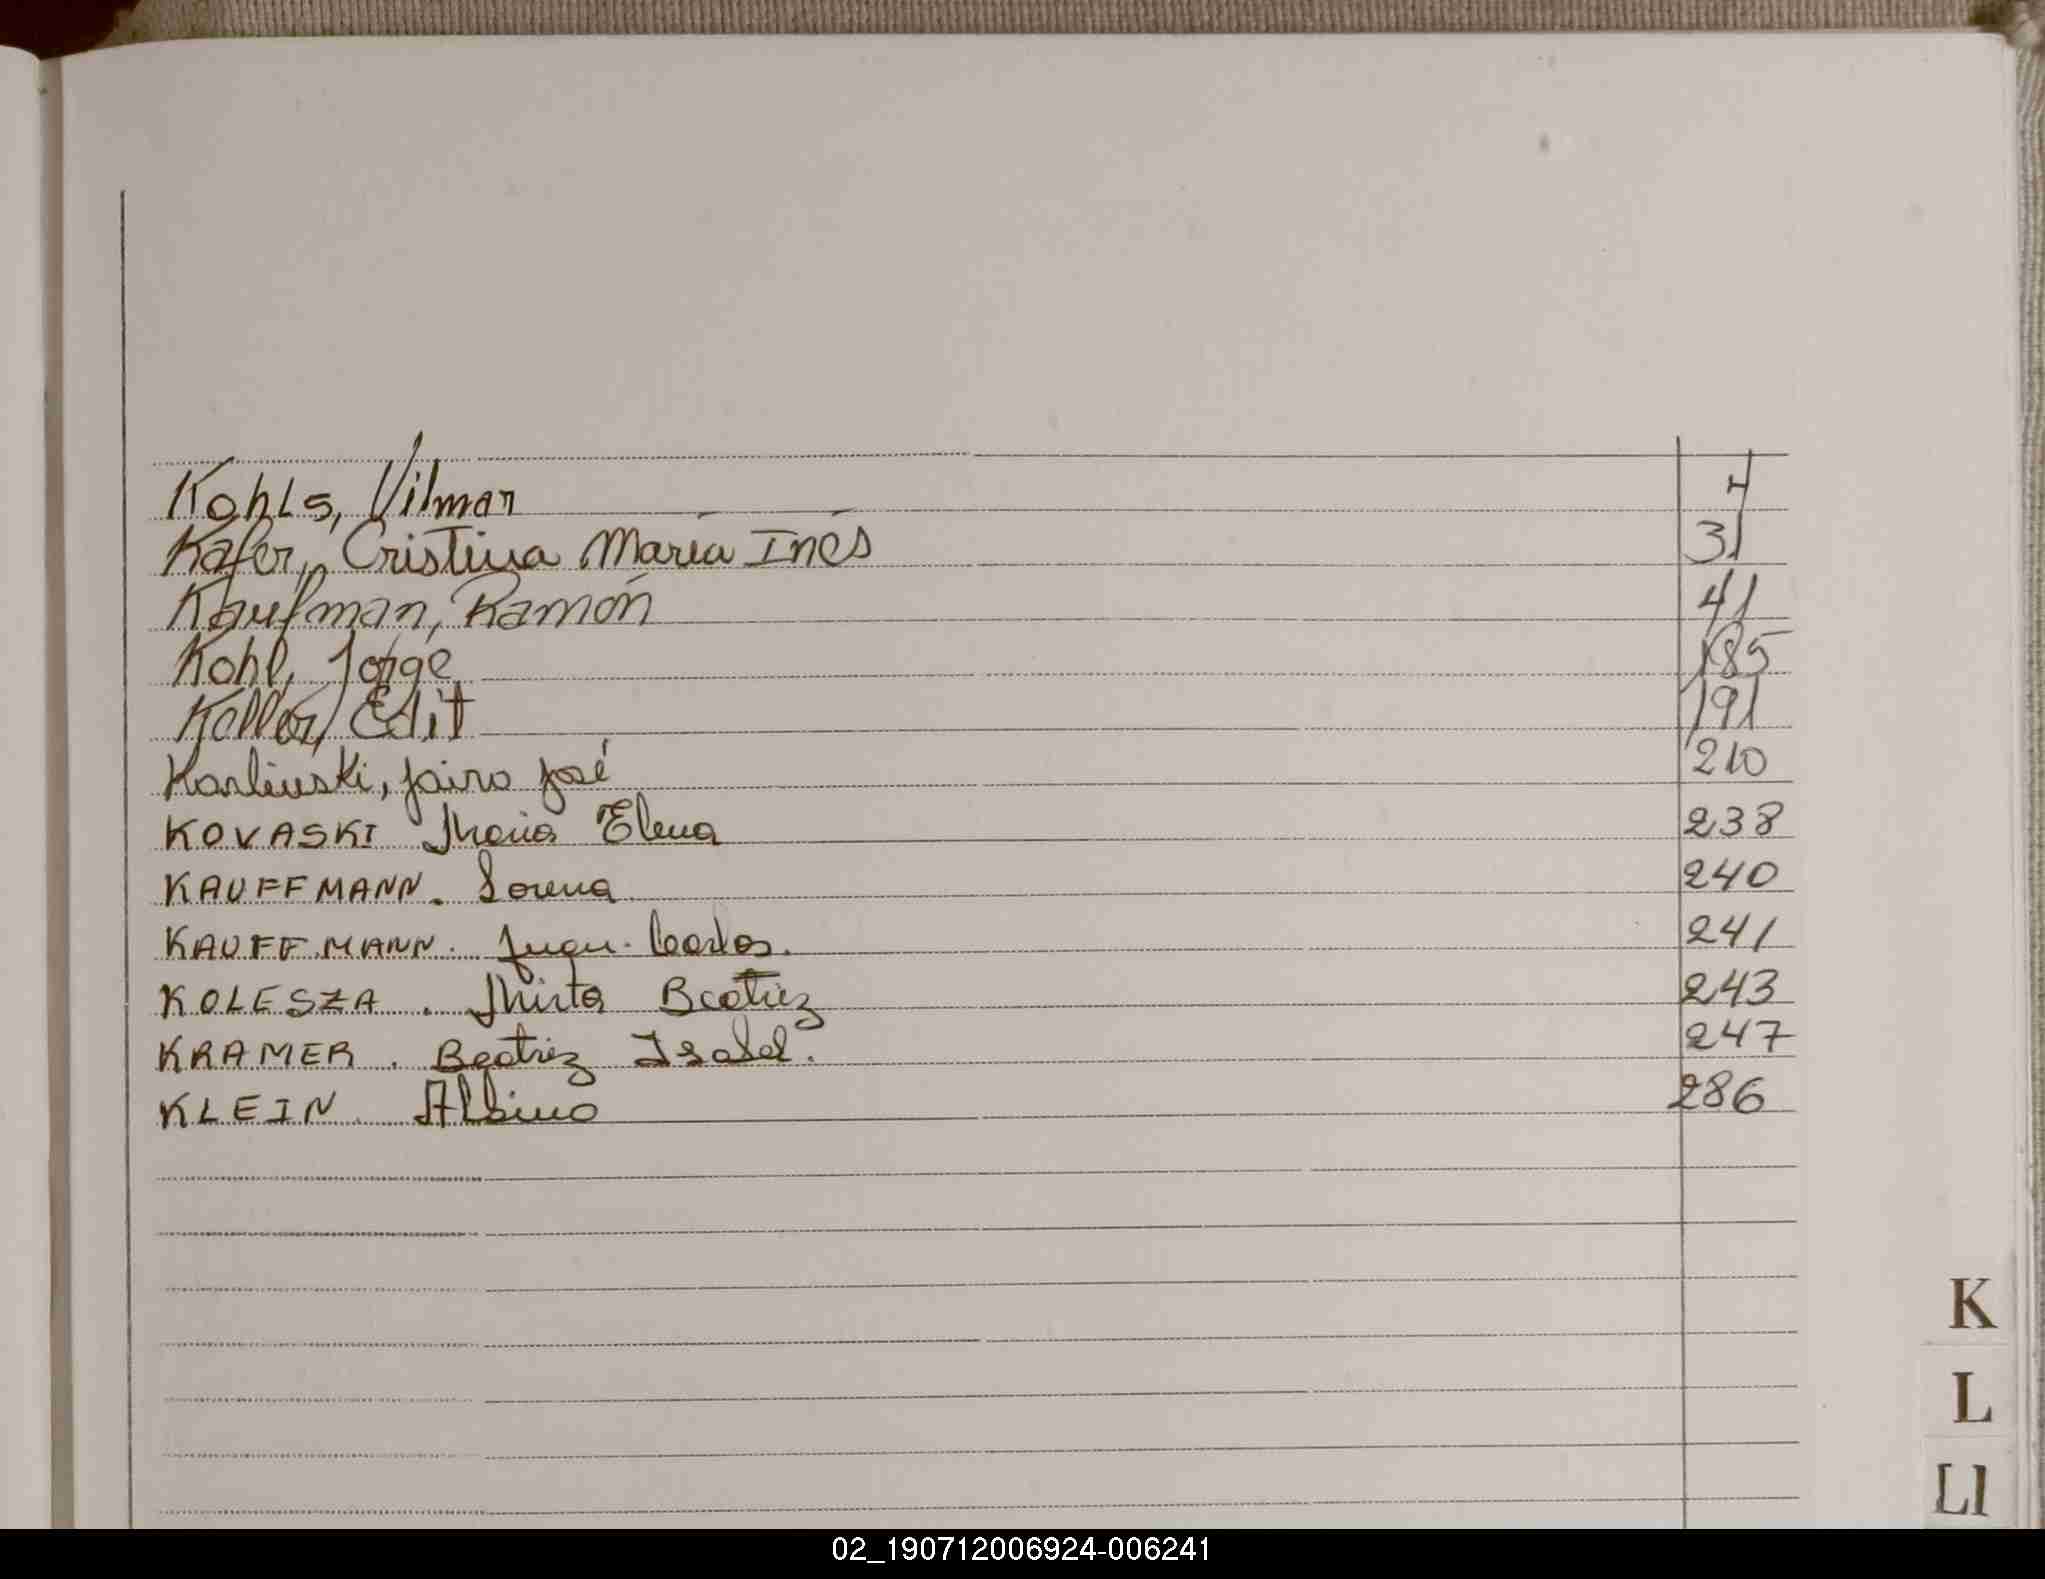 Kohls, Vilmar 4
Kafer, Cristina María Inés 31
Kaufman, Ramón 41
Kohl, Jorge 185
Keller, Edit 191
Karlinski, Jairo José 210
KOVASKI María Elena 238
KAUFFMANN. Lorena 240
KAUFFMANN. Juan Carlos. 241
KOLESZA. Mirta Beatriz 243
KRAMER. Beatriz Isabel. 247
KLEIN Albino 286
K
L
Ll
02_190712006924-006241